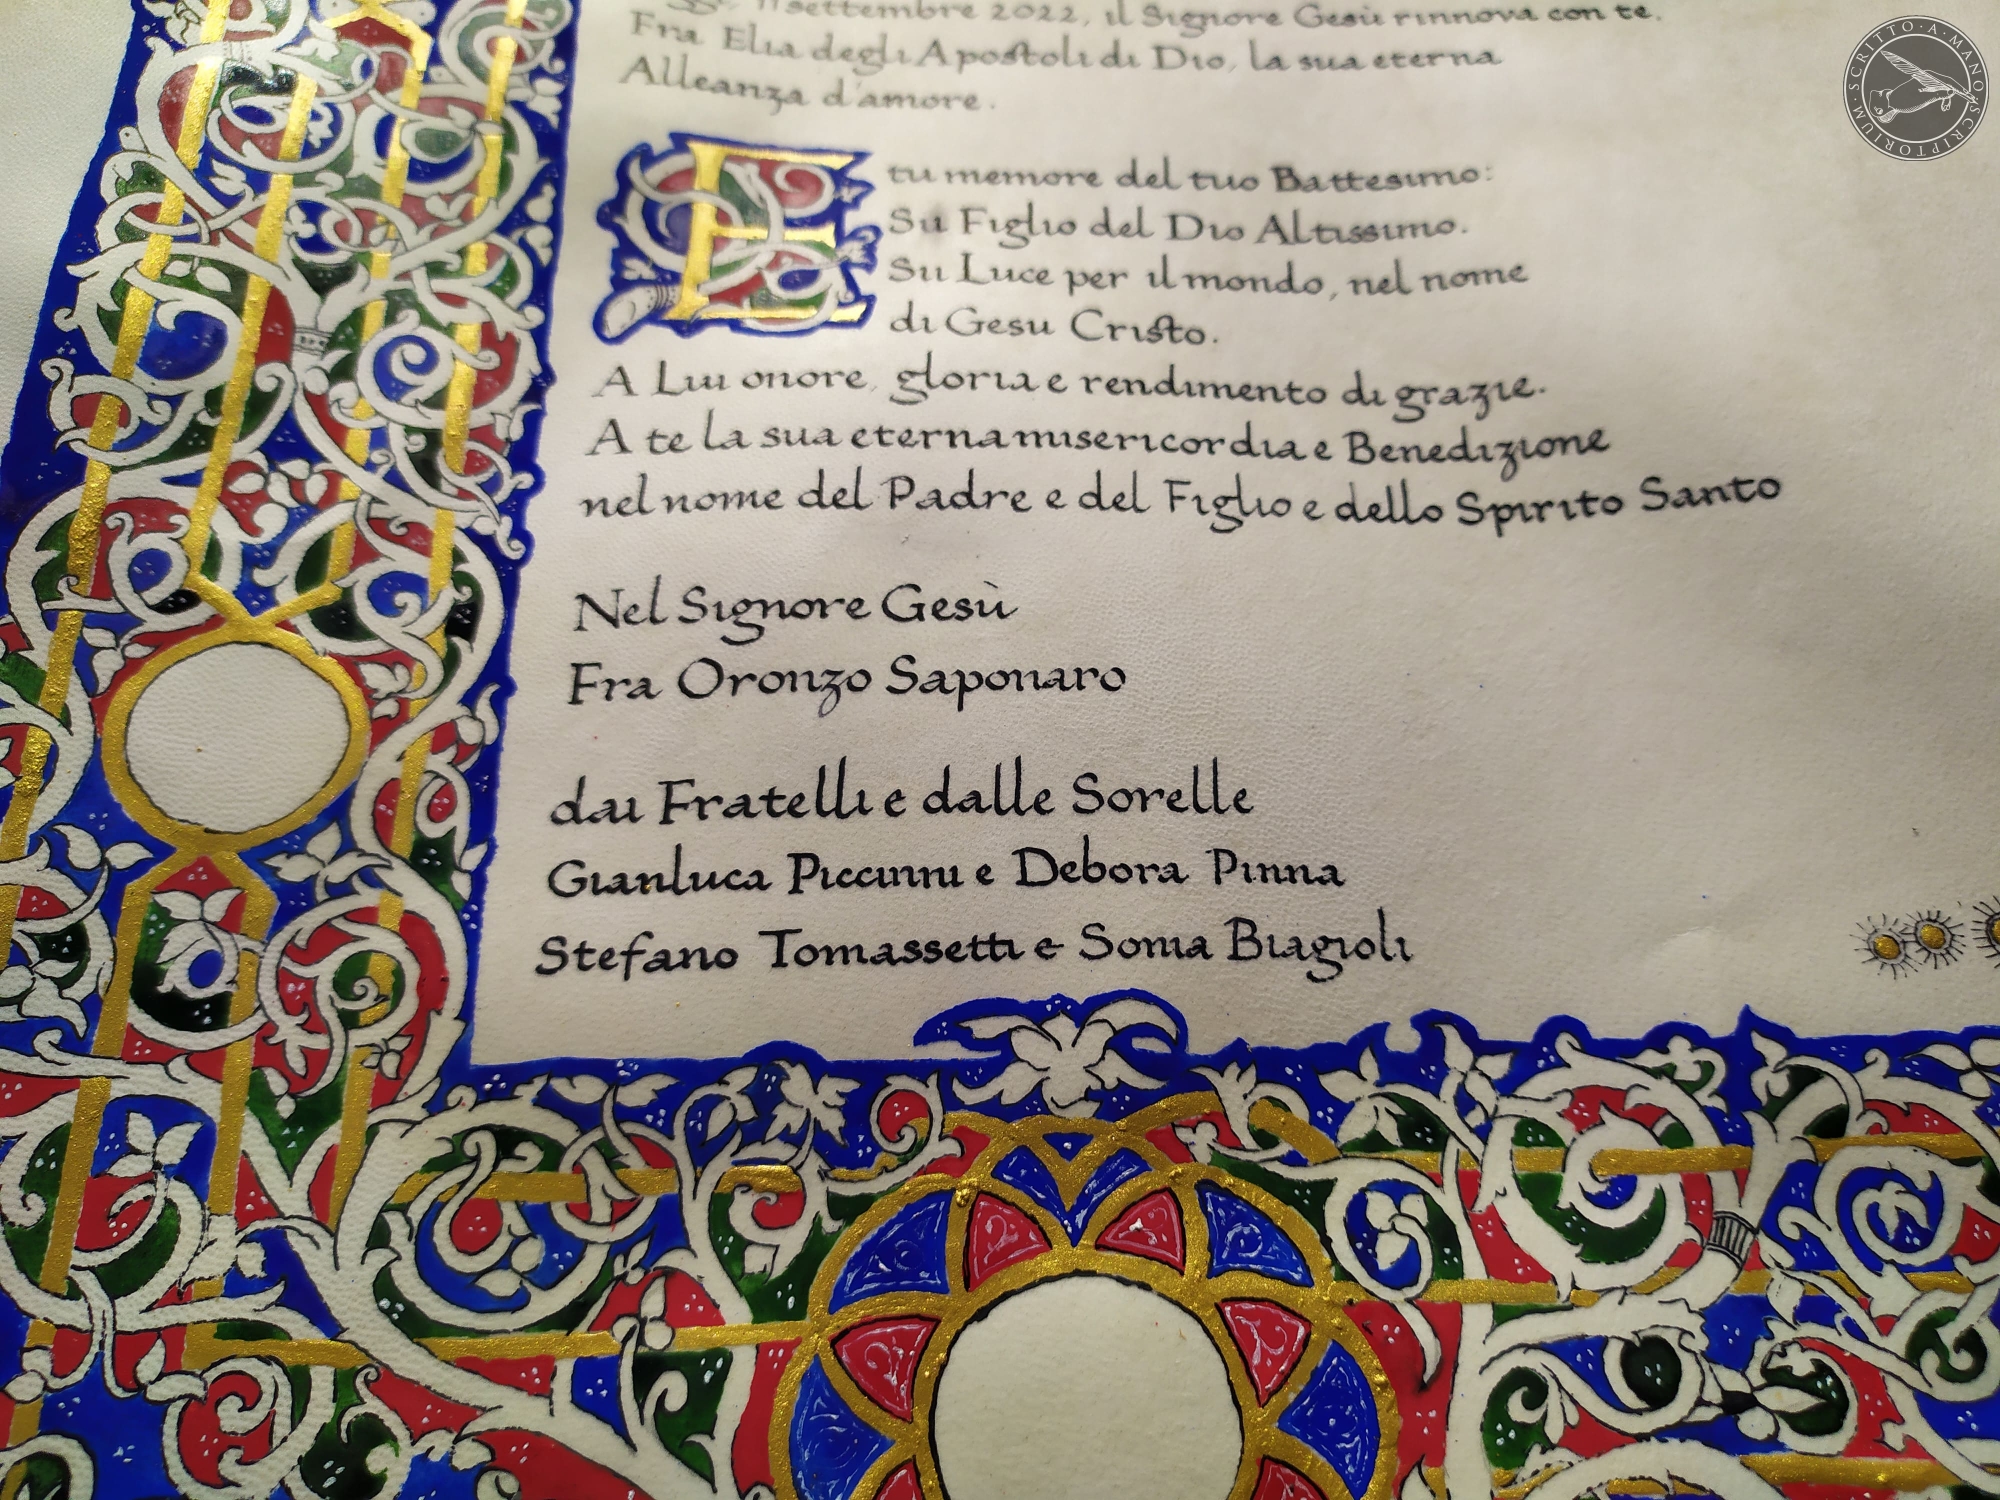 11 settembre 2022, il Signore Gesù rinnova con te,
Fra Elia degli Apostoli di Dio, la sua eterna
Alleanza d'amore.
E tu memore del tuo Battesimo:
Sii Figlio del Dio Altissimo.
Sii Luce per il mondo, nel nome
di Gesu Cristo.
A Lui onore, gloria e rendimento di grazie.
A te la sua eterna misericordia e Benedizione
nel nome del Padre e del Figlio e dello Spirito Santo
Nel Signore Gesù
Fra Oronzo Saponaro
dai Fratelli e dalle Sorelle
Gianluca Piccinni e Debora Pinna
Stefano Tomassetti e Sonia Biagioli
SCRITTO·A·MANO·SCRIPTORIUM·